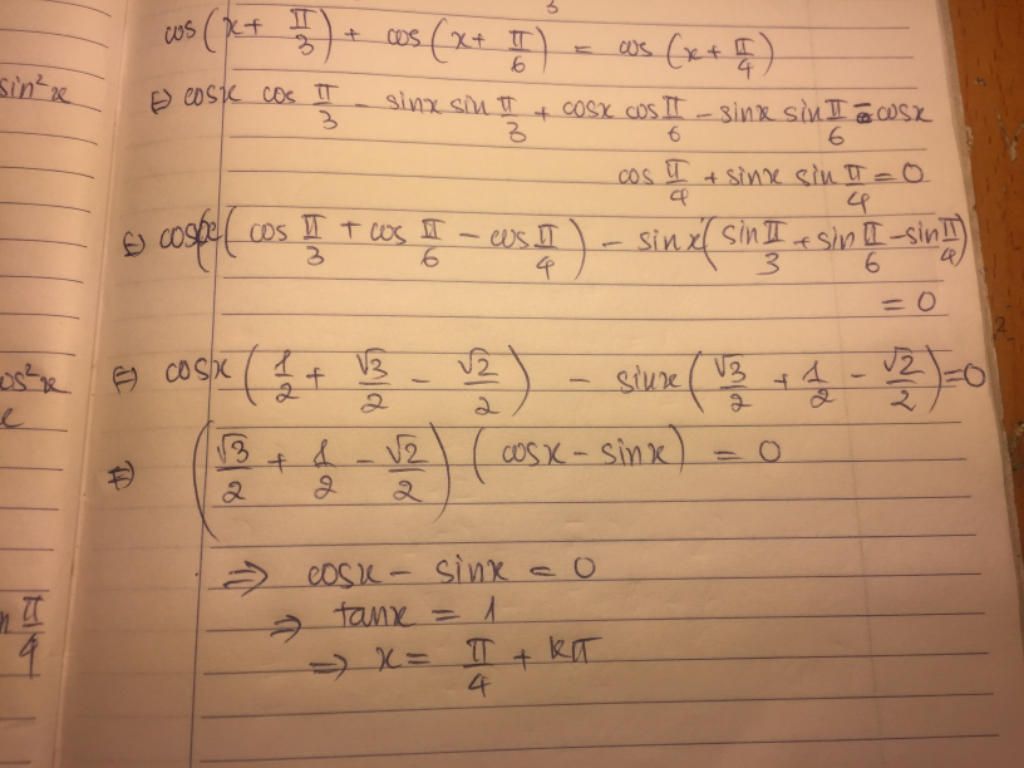 3
cos(x + π/3) + cos(x + π/6) = cos(x + π/4)
sin²x
⇔ cosx cos π/3 - sinx sin π/3 + cosx cos π/6 - sinx sin π/6 - cosx
cos π/4 + sinx sin π/4 = 0
⇔ cosx(cos π/3 + cos π/6 - cos π/4) - sinx(sin π/3 + sin π/6 - sin π/4)
= 0
2
os²x
⇔ cosx(1/2 + √3/2 - √2/2) - sinx(√3/2 + 1/2 - √2/2) = 0
⇔ (√3/2 + 1/2 - √2/2)(cosx - sinx) = 0
⇒ cosx - sinx = 0
n π/4
⇒ tanx = 1
⇒ x = π/4 + kπ